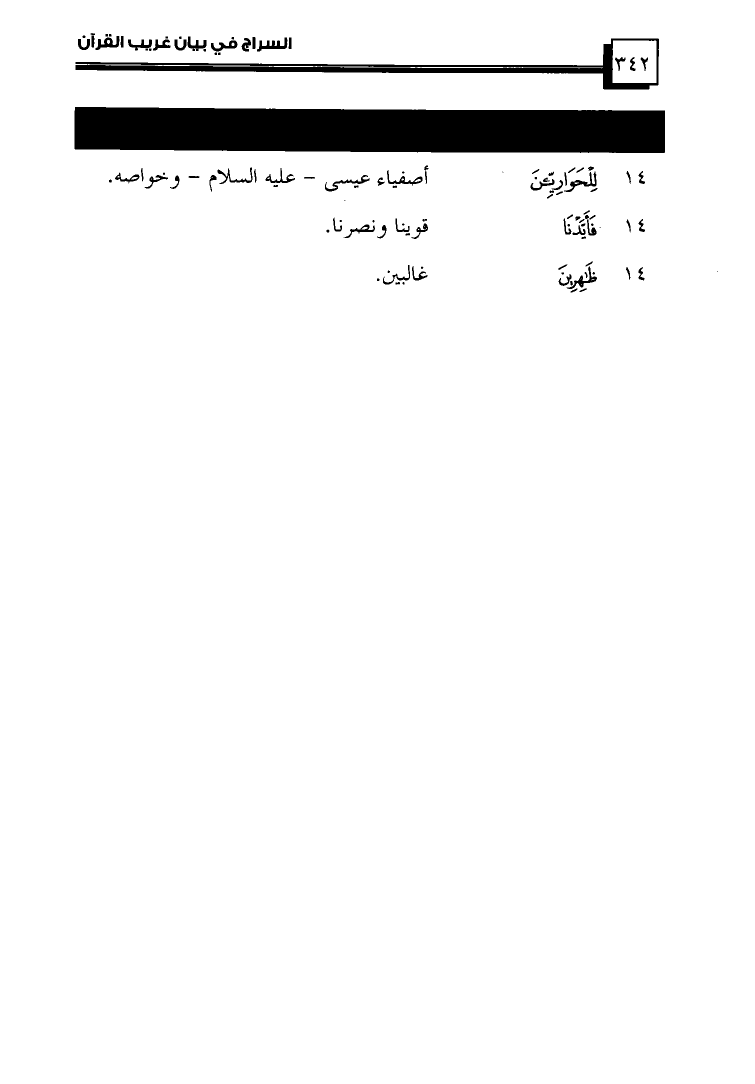 السراج في بيان غريب القرآن
٣٤٢
١٤ لِلْحَوَارِيِّـۧنَ أصفياء عيسى – عليه السلام – وخواصه.
١٤ فَأَيَّدْنَا قوينا ونصرنا.
١٤ ظَٰهِرِينَ غالبين.